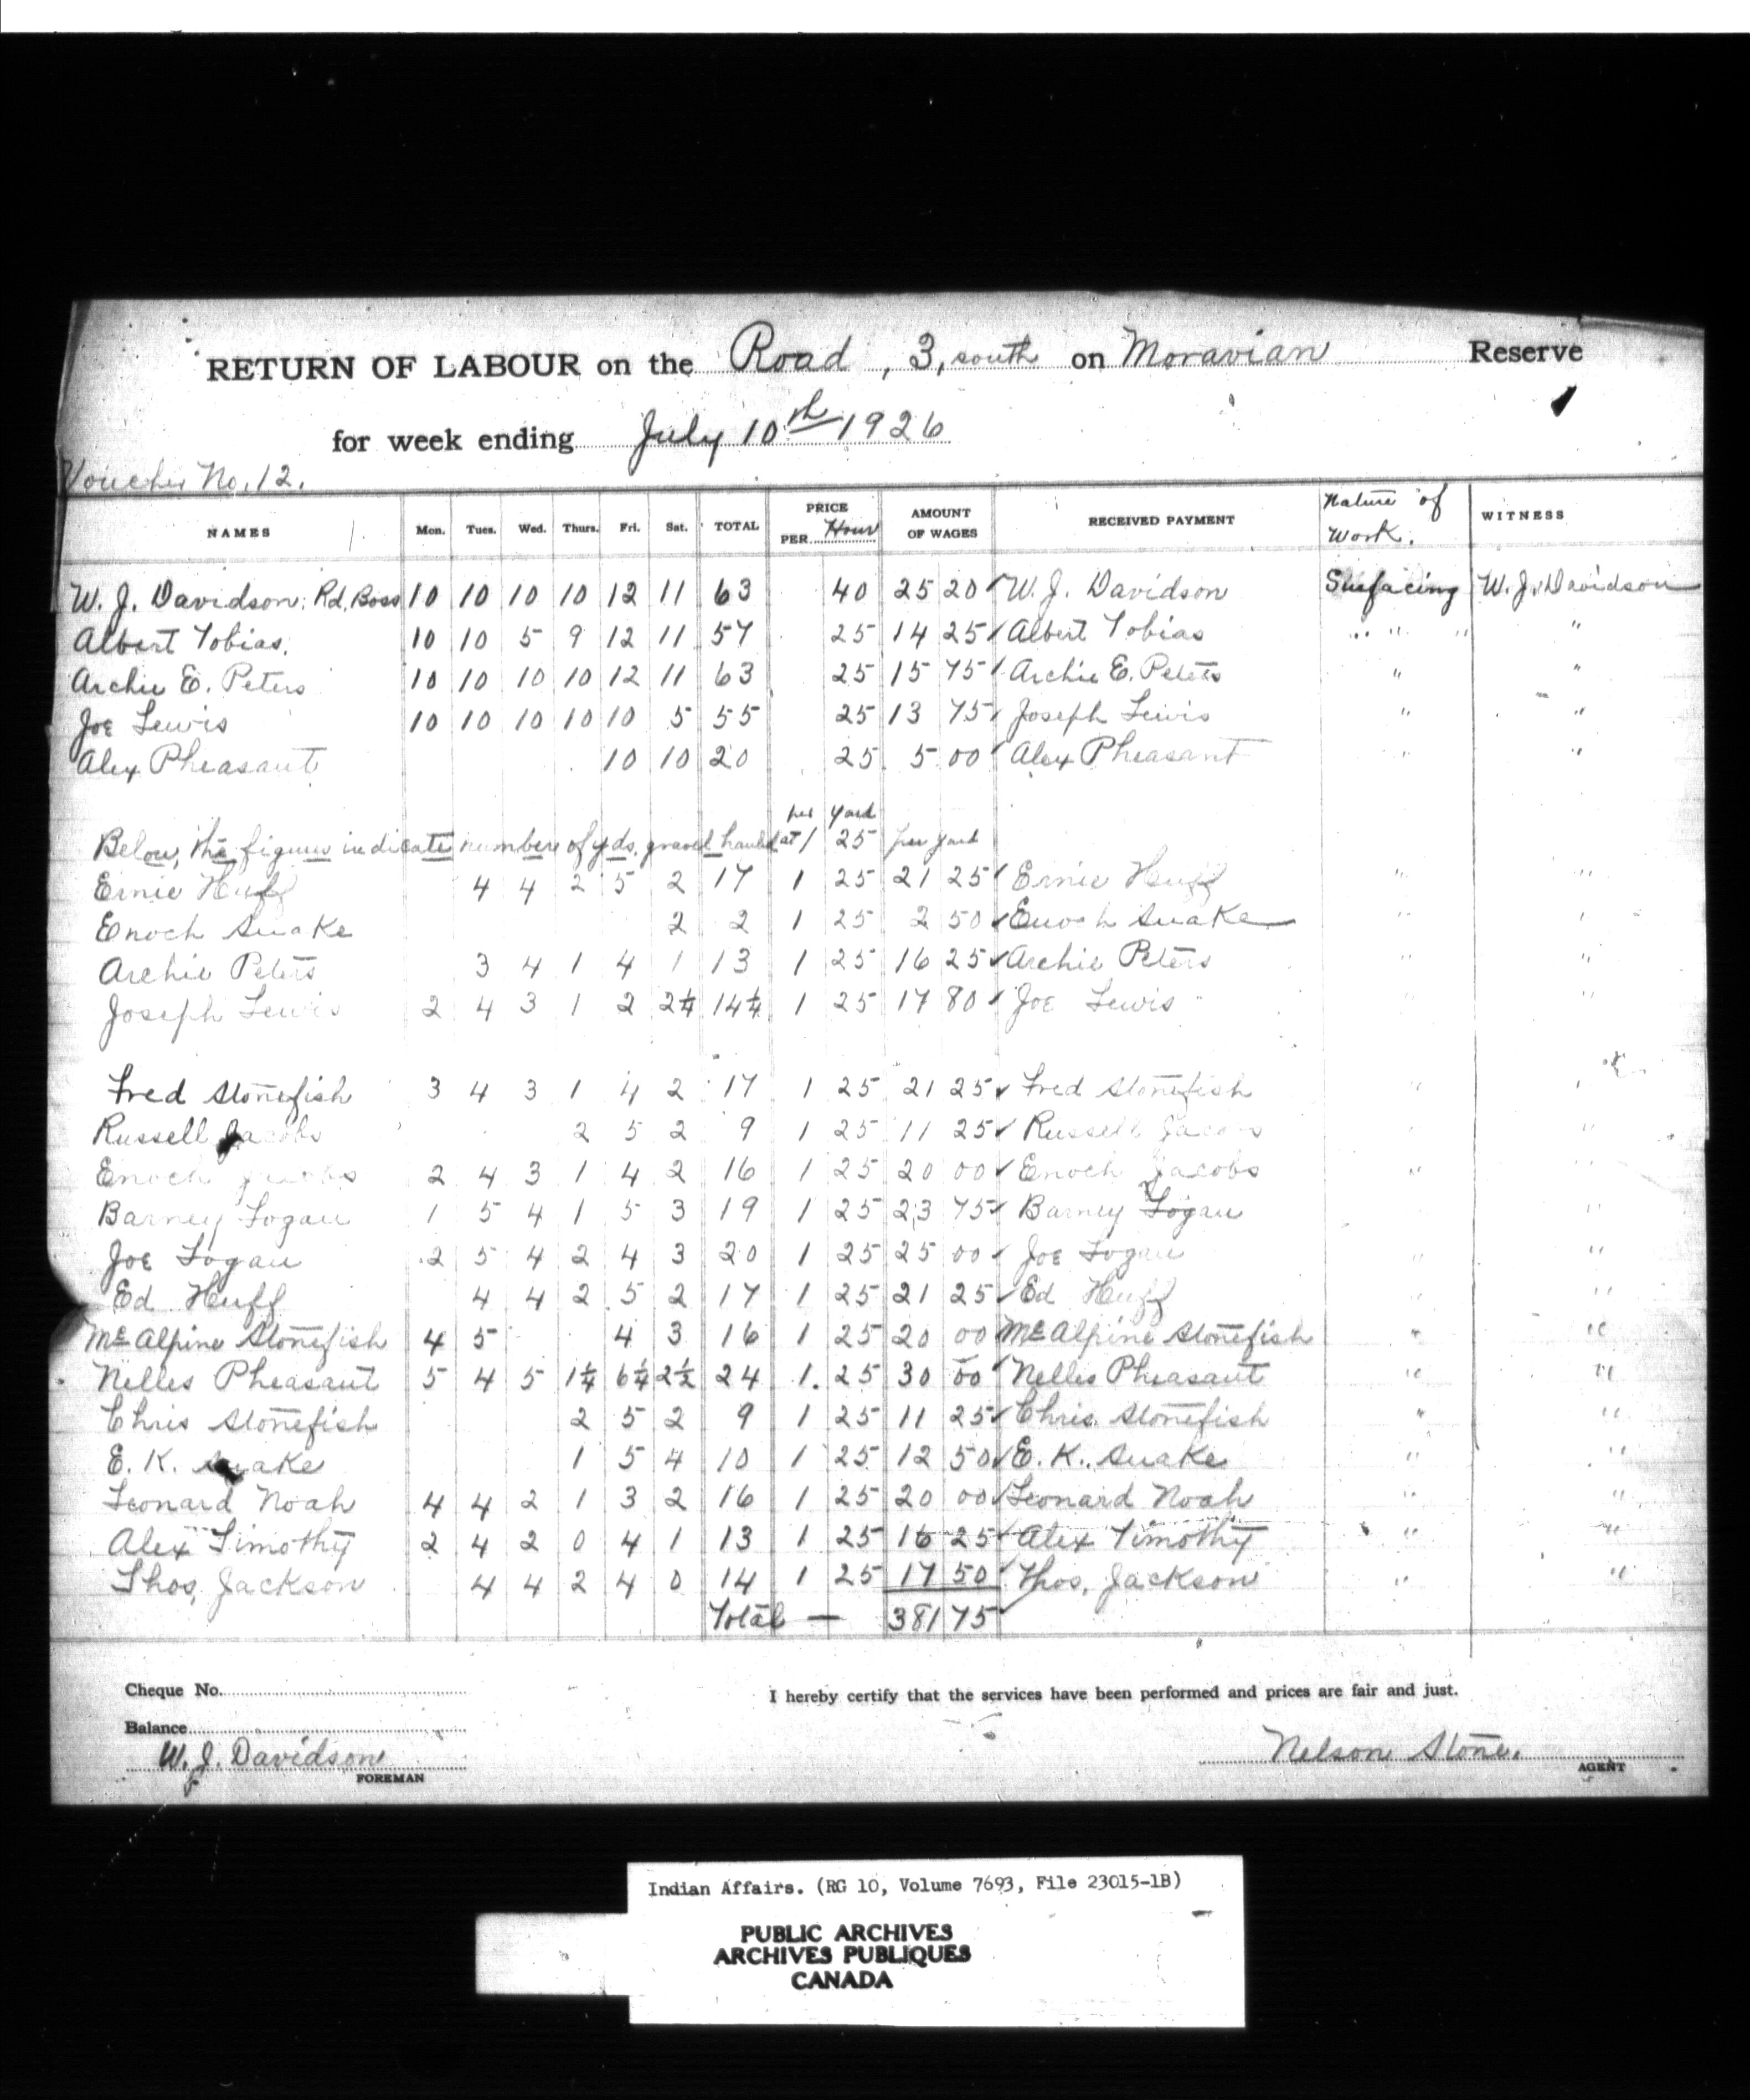 RETURN OF LABOUR on the Road, 3, south on Moravian Reserve
for week ending July 10th 1926
Voucher No. 12.
NAMES Mon. Tues. Wed. Thurs. Fri. Sat. TOTAL PRICE PER Hour AMOUNT OF WAGES RECEIVED PAYMENT Nature of Work. WITNESS
W. J. Davidson; Rd. Boss 10 10 10 10 12 11 63 40 25 20 W. J. Davidson Surfacing W. J. Davidson
Albert Tobias. 10 10 5 9 12 11 57 25 14 25 Albert Tobias " " " "
Archie E. Peters 10 10 10 10 12 11 63 25 15 75 Archie E. Peters " "
Joe Lewis 10 10 10 10 10 5 55 25 13 75 Joseph Lewis " "
Alex Pheasant 10 10 20 25 5 00 Alex Pheasant " "
per yard
Below, the figures indicate number of yds. gravel hauled at 1 25 per yard
Ernie Huff 4 4 2 5 2 17 1 25 21 25 Ernie Huff " "
Enoch Snake 2 2 1 25 2 50 Enoch Snake " "
Archie Peters 3 4 1 4 1 13 1 25 16 25 Archie Peters " "
Joseph Lewis 2 4 3 1 2 2¼ 14¼ 1 25 17 80 Joe Lewis " "
Fred Stonefish 3 4 3 1 4 2 17 1 25 21 25 Fred Stonefish " "
Russell Jacobs 2 5 2 9 1 25 11 25 Russell Jacobs " "
Enoch Jacobs 2 4 3 1 4 2 16 1 25 20 00 Enoch Jacobs " "
Barney Logan 1 5 4 1 5 3 19 1 25 23 75 Barney Logan " "
Joe Logan 2 5 4 2 4 3 20 1 25 25 00 Joe Logan " "
Ed Huff 4 4 2 5 2 17 1 25 21 25 Ed Huff " "
McAlpine Stonefish 4 5 4 3 16 1 25 20 00 McAlpine Stonefish " "
Nelles Pheasant 5 4 5 1¼ 6¼ 2½ 24 1. 25 30 00 Nelles Pheasant " "
Chris Stonefish 2 5 2 9 1 25 11 25 Chris. Stonefish " "
E. K. Snake 1 5 4 10 1 25 12 50 E. K. Snake " "
Leonard Noah 4 4 2 1 3 2 16 1 25 20 00 Leonard Noah " "
Alex Timothy 2 4 2 0 4 1 13 1 25 16 25 Alex Timothy " "
Thos. Jackson 4 4 2 4 0 14 1 25 17 50 Thos. Jackson " "
Total — 381 75
Cheque No.
I hereby certify that the services have been performed and prices are fair and just.
Balance
W. J. Davidson
FOREMAN
Nelson Stone.
AGENT
Indian Affairs. (RG 10, Volume 7693, File 23015-1B)
PUBLIC ARCHIVES
ARCHIVES PUBLIQUES
CANADA